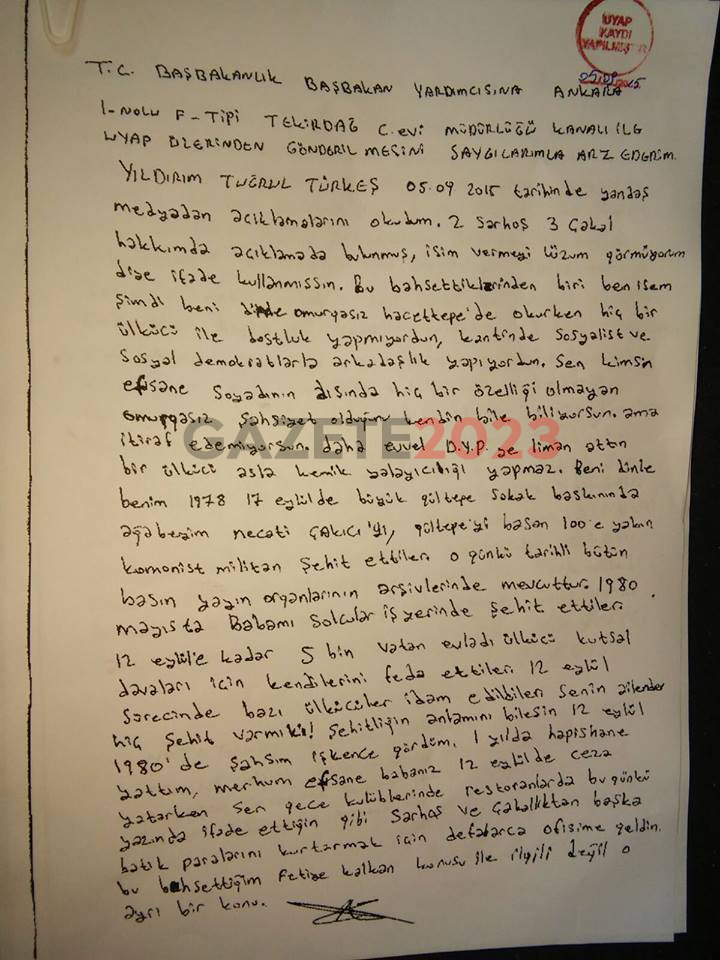 UYAP
KAYDI
YAPILMIŞTIR
T.C. BAŞBAKANLIK BAŞBAKAN YARDIMCISINA ANKARA
1-NOLU F-TİPİ TEKİRDAĞ C.evi MÜDÜRLÜĞÜ KANALI İLE
UYAP ÜZERİNDEN GÖNDERİLMESİNİ SAYGILARIMLA ARZ EDERİM.
YILDIRIM TUĞRUL TÜRKEŞ 05.09 2015 tarihinde yandaş
medyadan açıklamalarını okudum. 2 Sarhoş 3 Çakal
hakkımda açıklamada bulunmuş, isim vermeyi lüzum görmüyorum
diye ifade kullanmışsın. Bu bahsettiklerinden biri ben isem
Şimdi beni dinle omurgasız hacettepe'de okurken hiç bir
ülkücü ile dostluk yapmıyordun, kantinde Sosyalist ve
Sosyal demokratlarla arkadaşlık yapıyordun. Sen kimsin
efsane Soyadının dışında hiç bir özelliği olmayan
omurgasız Şahsiyet olduğunu kendin bile biliyorsun. ama
itiraf edemiyorsun. daha evvel D.Y.P. ye liman attın
GAZETE2023
bir ülkücü asla kemik yalayıcılığı yapmaz. Beni dinle
benim 1978 17 eylülde büyük gültepe Sokak baskınında
ağabeyim necati ÇAKICI'YI, gültepe'yi basan 100'e yakın
komonist militan Şehit ettiler. o günkü tarihli bütün
basın yayın organlarının arşivlerinde mevcuttur. 1980
mayısta Babamı Solcular iş yerinde Şehit ettiler.
12 eylül'e kadar 5 bin vatan evladı ülkücü kutsal
davaları için kendilerini feda ettiler. 12 eylül
Sürecinde bazı ülkücüler idam edildiler. Senin ailenden
hiç Şehit varmıki! Şehitliğin anlamını bilesin 12 eylül
1980'de Şahsım işkence gördüm. 1 yılda hapishane
yattım, merhum efsane babanız 12 eylülde ceza
yatarken Sen gece kulüblerinde restoranlarda bu günkü
yazında ifade ettiğin gibi Sarhoş ve Çakallıktan başka
batık paralarını kurtarmak için defalarca ofisime geldin.
bu bahsettiğim Fetiye kalkan konusu ile ilgili değil o
ayrı bir konu.